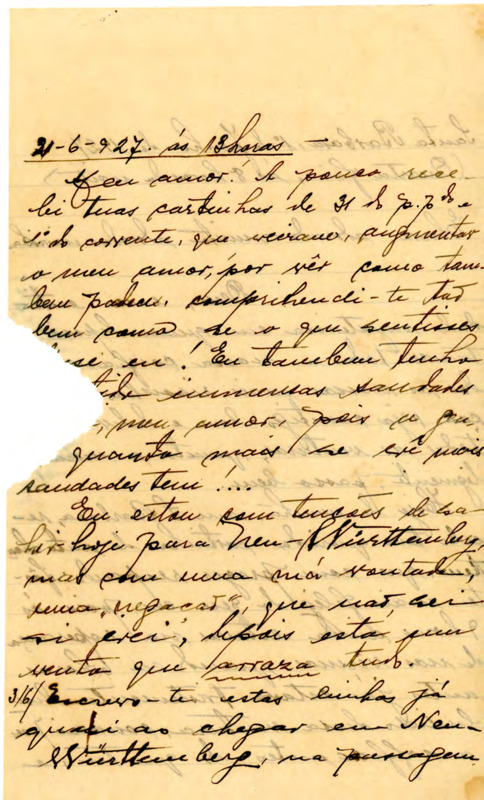 21-6-927. ás 13horas —
Meu amor! A pouco rece-
bi tuas cartinhas de 31 do p.pdo e
1º do corrente, que vieram, augmentar
o meu amor, por vêr como tam-
bem padece, comprihendi-te tão
bem como se o que sentisses
fosse eu! Eu tambem tenho
immensas saudades
, meu amor, pois a gen
quanto mais se vê mais
saudades tem!...
Eu estou com tenções de sa-
hir hoje para Neu-Württemberg,
mas com uma má vontade,
uma "negação", que não sei
si irei, depois está um
vento que arraza tudo.
3/6/ Escrevo-te estas linhas já
quasi ao chegar em Neu-
Württemberg, na passagem